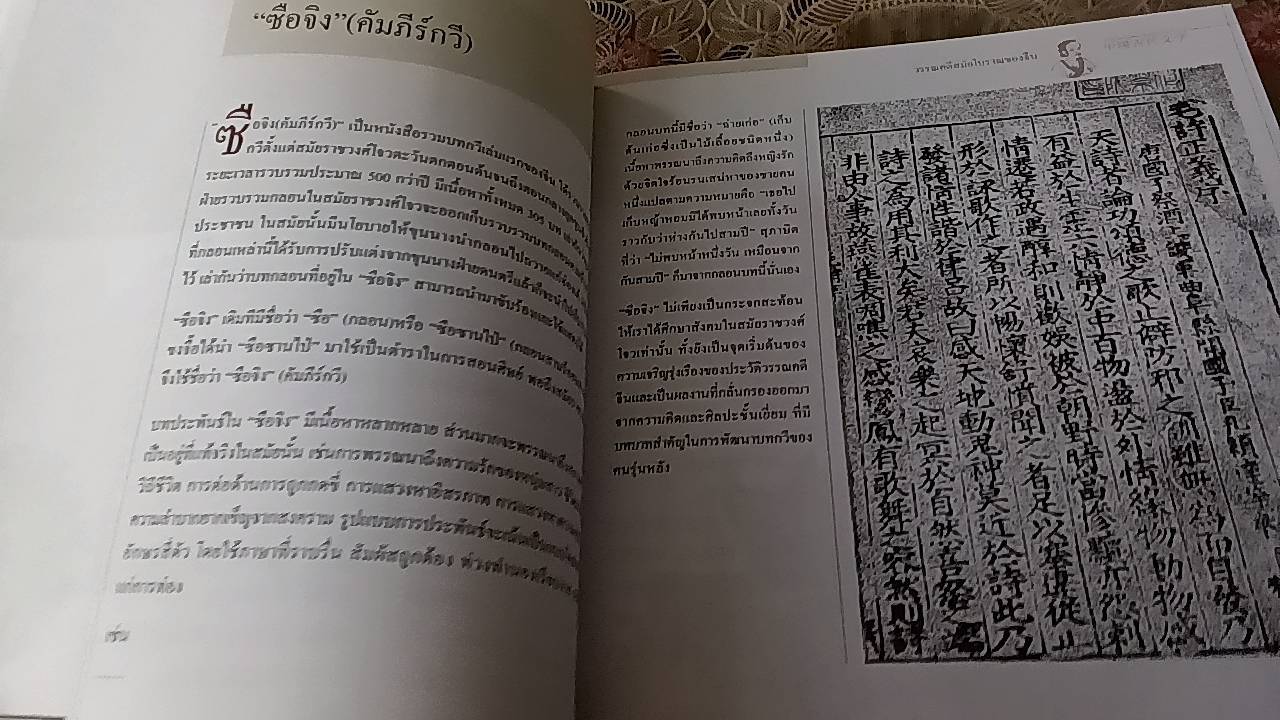 “ซือจิง”(คัมภีร์กวี)
“ซือจิง(คัมภีร์กวี)” เป็นหนังสือรวมบทกวีเล่มแรกของจีน ได้
กวีตั้งแต่สมัยราชวงศ์โจวตะวันตกตอนต้นจนถึงตอนกลาง
ระยะเวลารวบรวมประมาณ 500 กว่าปี มีเนื้อหาทั้งหมด 305 บท
ฝ่ายรวบรวมกลอนในสมัยราชวงศ์โจวจะออกเก็บรวบรวมบทกลอน
ประชาชน ในสมัยนั้นมีนโยบายให้ขุนนางนำกลอนไปถวาย
ที่กลอนเหล่านี้ได้รับการปรับแต่งจากขุนนางฝ่ายดนตรีแล้วก็จะนำไป
ไว้ เล่ากันว่าบทกลอนที่อยู่ใน “ซือจิง” สามารถนำมาขับร้องและ
“ซือจิง” เดิมทีมีชื่อว่า “ซือ” (กลอน)หรือ “ซือซานไป่”
ขงจื๊อได้นำ “ซือซานไป่” มาใช้เป็นตำราในการสอนศิษย์
จึงใช้ชื่อว่า “ซือจิง” (คัมภีร์กวี)
บทประพันธ์ใน “ซือจิง” มีเนื้อหาหลากหลาย ส่วนมากจะพรรณนาถึง
เป็นอยู่ที่แท้จริงในสมัยนั้น เช่นการพรรณนาถึงความรักของหนุ่มสาว
วิถีชีวิต การต่อต้านการถูกกดขี่ การแสวงหาอิสรภาพ
ความลำบากยากเข็ญจากสงคราม รูปแบบการประพันธ์จะเน้น
อักษรสี่ตัว โดยใช้ภาษาที่ราบรื่น สัมผัสถูกต้อง
แก่การท่อง
เช่น
วรรณคดีสมัยโบราณของจีน
กลอนบทนี้มีชื่อว่า “ฉ่ายเก๋อ” (เก็บ
ต้นเก๋อซึ่งเป็นไม้เลื้อยชนิดหนึ่ง)
เนื้อหาพรรณนาถึงความคิดถึงหญิงรัก
ด้วยจิตใจร้อนรนเสน่หาของชายคน
หนึ่งแปลตามความหมายคือ “เธอไป
เก็บหญ้าหอมมิได้พบหน้าเลยทั้งวัน
ราวกับว่าห่างกันไปสามปี” สุภาษิต
ที่ว่า “ไม่พบหน้าหนึ่งวัน เหมือนจาก
กันสามปี” ก็มาจากกลอนบทนี้นั่นเอง
“ซือจิง” ไม่เพียงเป็นกระจกสะท้อน
ให้เราได้ศึกษาสังคมในสมัยราชวงศ์
โจวเท่านั้น ทั้งยังเป็นจุดเริ่มต้นของ
ความเจริญรุ่งเรืองของประวัติวรรณคดี
จีนและเป็นผลงานที่กลั่นกรองออกมา
จากความคิดและศิลปะชั้นเยี่ยม ที่มี
บทบาทสำคัญในการพัฒนาบทกวีของ
คนรุ่นหลัง
正義序
夫詩者論功頌德之歌止僻防邪之訓雖無為而自發乃
有益於生靈六情靜於中百物盪於外情緣物動物感
情遷若政遇醇和則歡娛被於朝野時當慘黷亦怨刺
形於詠歌作之者所以暢懷舒憤聞之者足以塞違從正
發諸情性諧於律呂故曰感天地動鬼神莫近於詩此乃
詩之為用其利大矣若夫哀樂之起冥於自然喜怒之
非由人事故燕雀表啁噍之感鸞鳳有歌舞之容然則詩